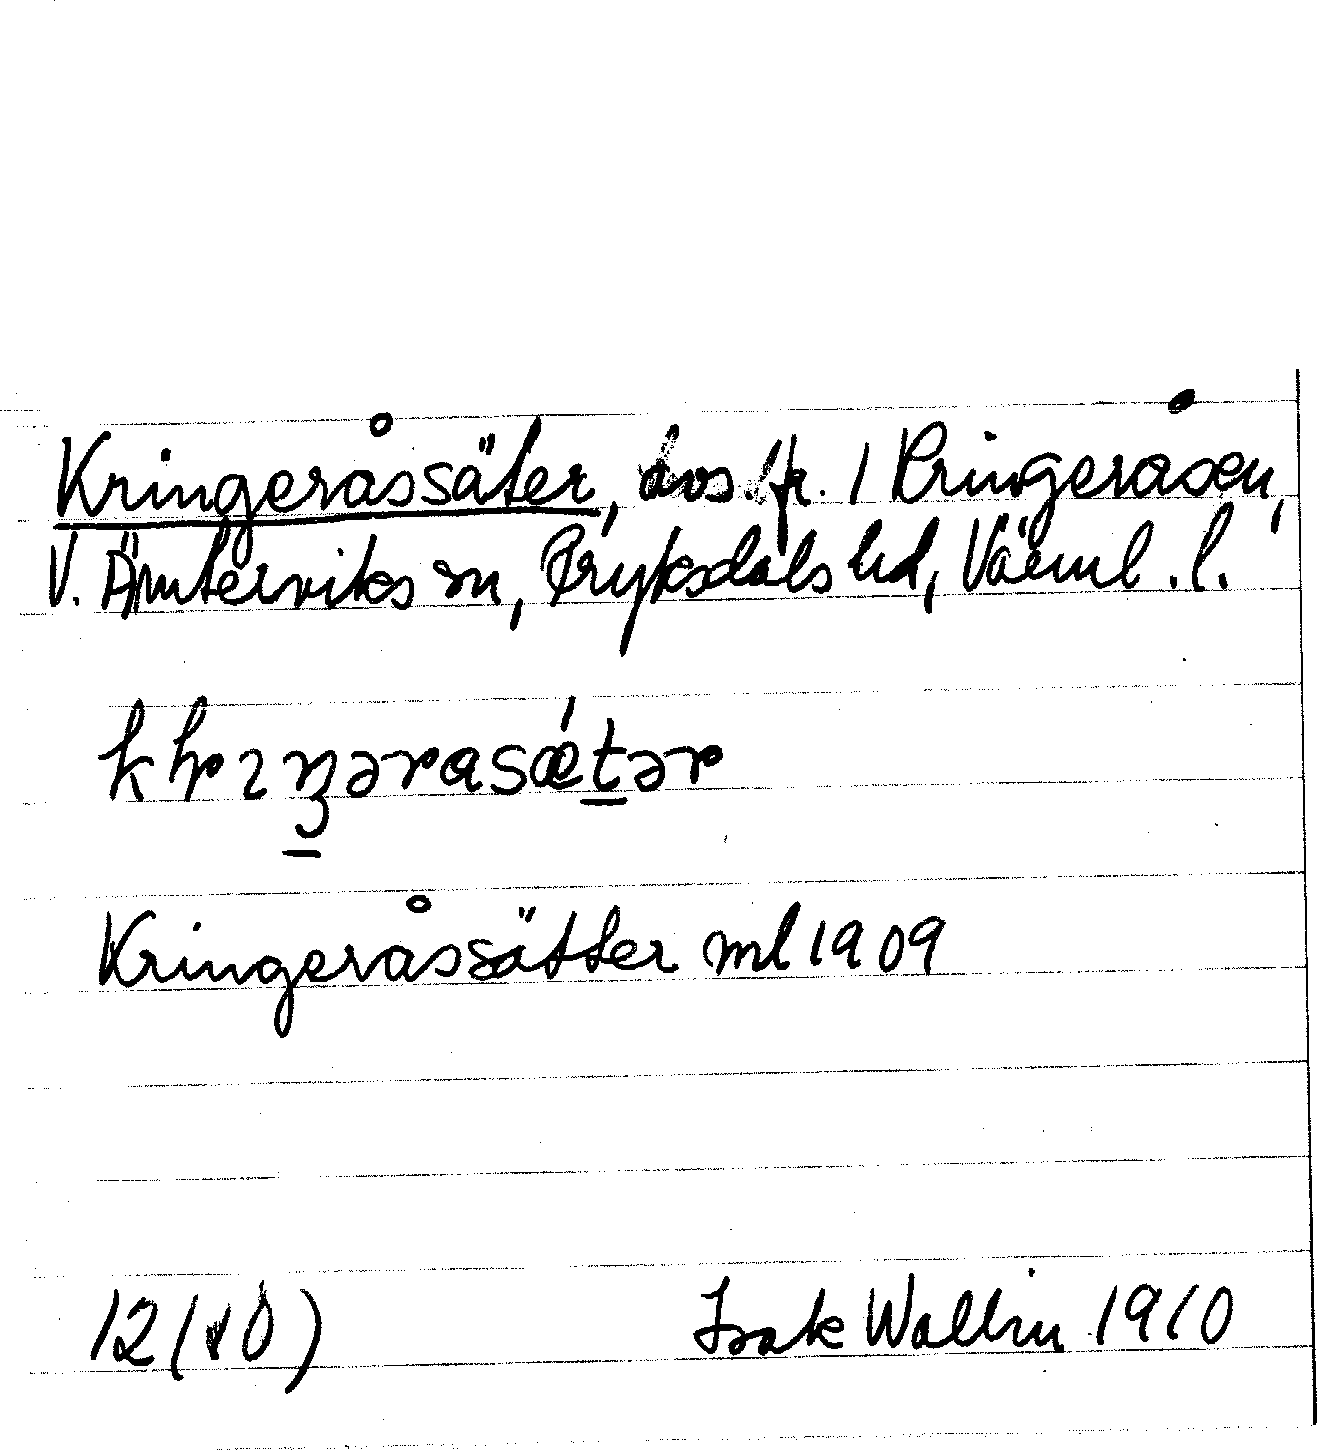 Kringeråssäter, avs. fr. 1 Kringeråsen,
V. Ämterviks sn, Fryksdals hd, Värml. l.
Kringeråssätter ml 1909
12 (10)
Isak Wallin 1910